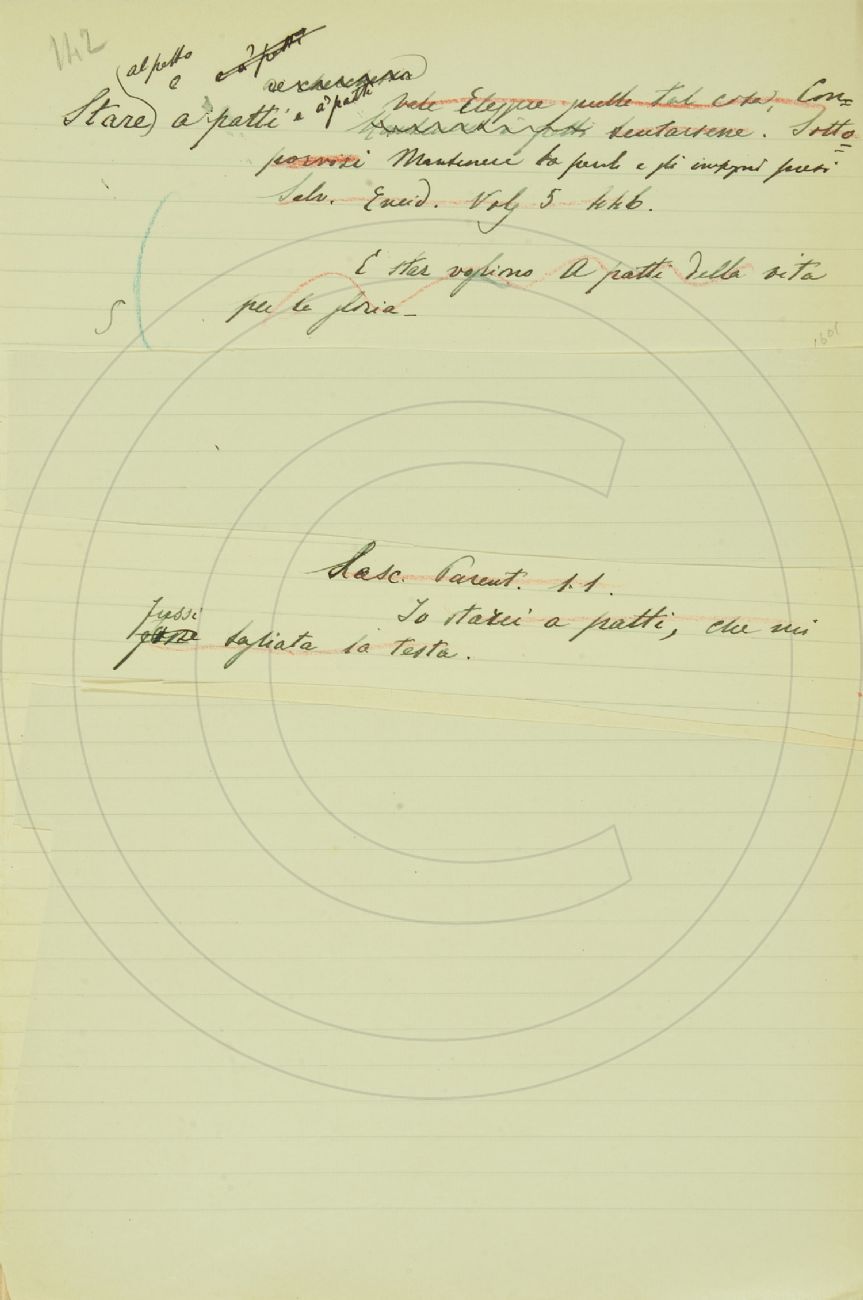 142
al patto
e
Stare) a patti e a' patti vale Eleggere quella tal cosa, Con=
tentarsene. Sotto=
porvisi Mantenere la parola e gli impegni presi
Salv. Eneid. Volg 5 446.
E star vogliono A patti della vita
per la gloria_
S
1601
Lasc. Parent. 1. 1.
Io starei a patti, che mi
fussi tagliata la testa.